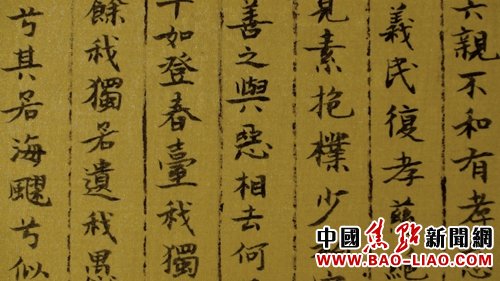 六親不和有孝
義民復孝慈絕
見素抱樸少
善之與惡相去何
如登春臺我獨
餘我獨若遺我愚
兮其若海飂兮似
中國焦點新聞網
WWW.BAO-LIAO.COM